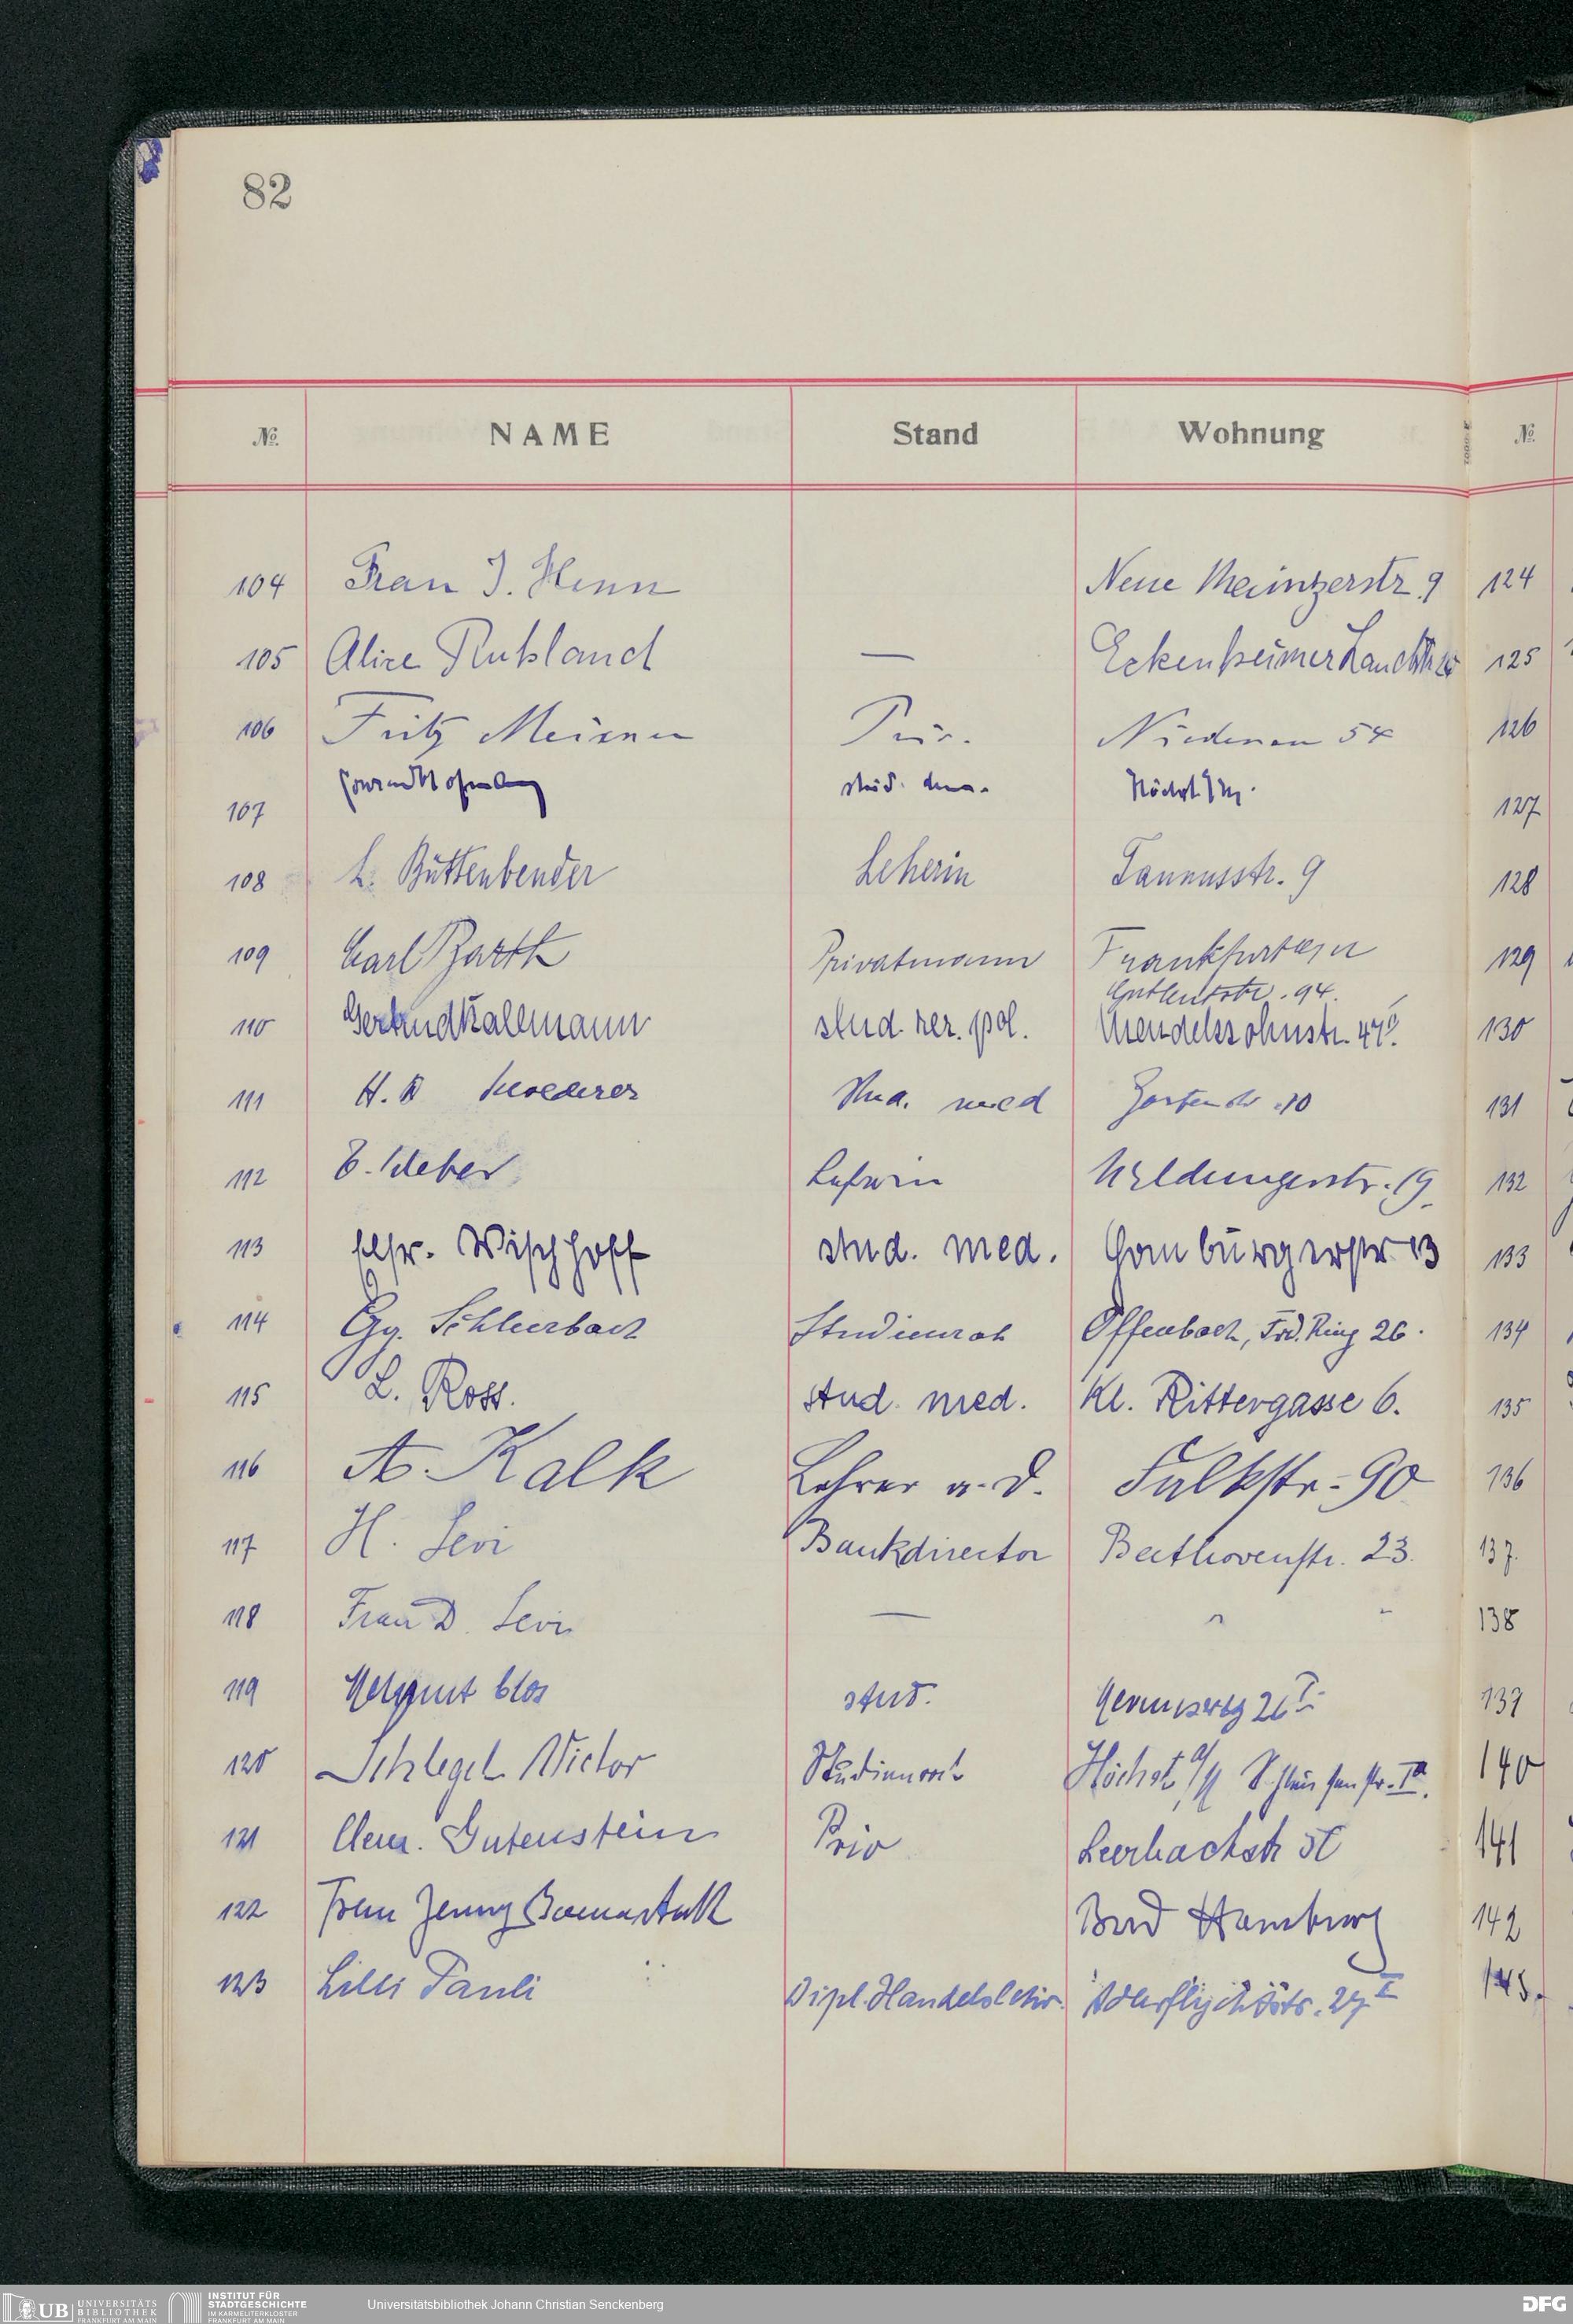 82
№ NAME Stand Wohnung №
104 Frau J. Henn Neue Mainzerstr. 9 124
105 Alice Rußland — Eckenheimer Landstr. 125
106 Fritz Meixner Priv. Niedenau 54 126
107 stud. chem. Höchst / M. 127
108 L. Büttenbender Leherin Taunusstr. 9 128
109 Carl Barth Privatmann Frankfurt a/M 129
Gutleutstr. 94.
110 Gertrud Kallmann stud. rer. pol. Mendelssohnstr. 47 130
111 H. Stud. med Gartenstr. 10 131
112 E. Weber Lehrerin 19. 132
113 Wischhoff stud. med. Homburgerstr 13 133
114 Gg. Schleerbach Studienrat Offenbach, Frd. Ring 26. 134
115 L. Ross. stud. med. Kl. Rittergasse 6. 135
116 A. Kalk Lehrer a. D. Falkstr. 90 136
117 H. Levi Bankdirector Beethovenstr. 23. 137.
118 Frau D. Levi — 138
119 stud. 139
120 Schlegel Victor Studienrat Höchst a/M 140
121 Gutenstein Priv Leerbachstr 141
122 Frau Jenny Bad Homburg 142
123 Lilli Pauli Dipl. Handelslehr. Adlerflychtstr. 143.
UB UNIVERSITÄTS
BIBLIOTHEK
FRANKFURT AM MAIN
INSTITUT FÜR
STADTGESCHICHTE
IM KARMELITERKLOSTER
FRANKFURT AM MAIN
Universitätsbibliothek Johann Christian Senckenberg
DFG